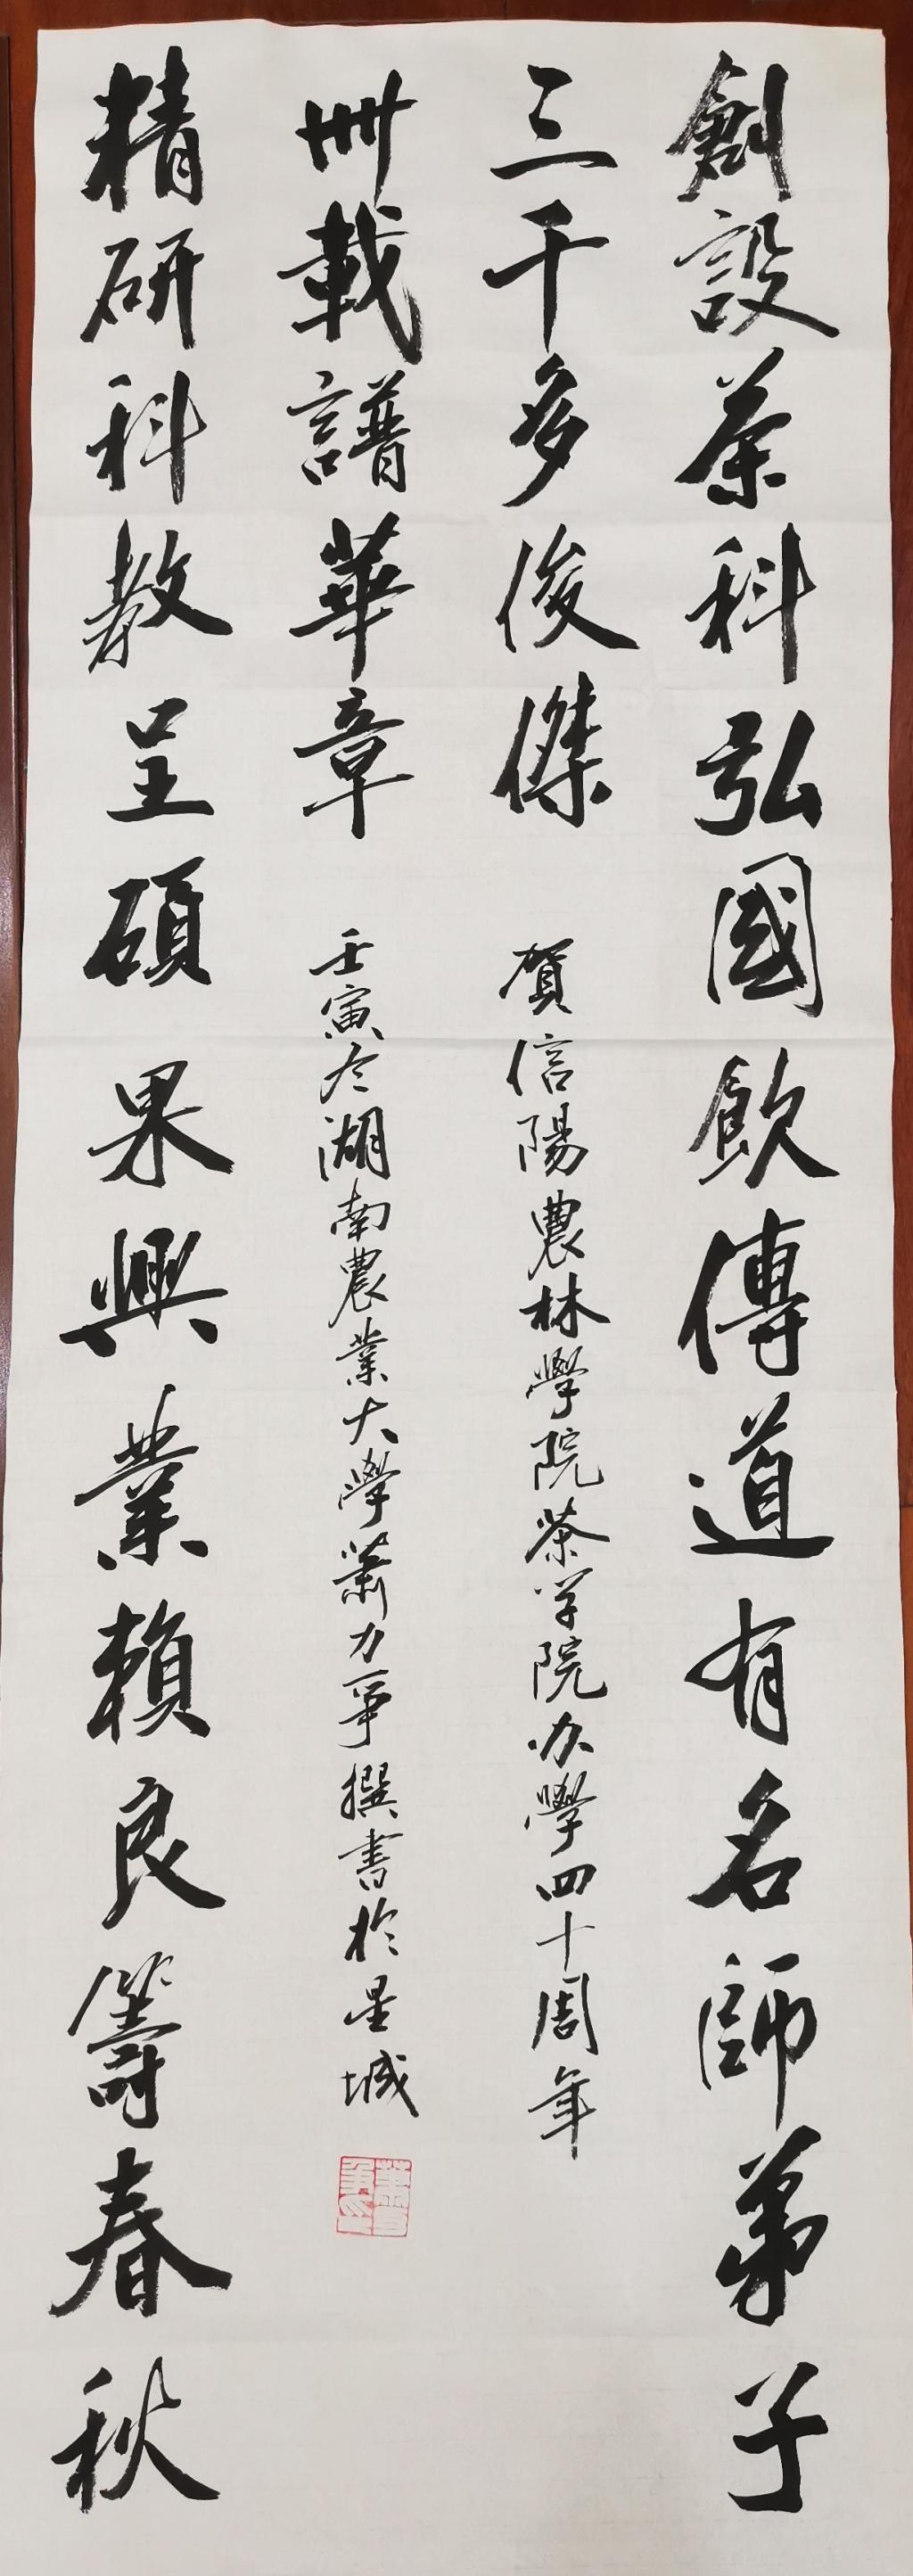 創設茶科弘國飲傳道有名師弟子
三千多俊傑
賀信陽農林學院茶学院办學四十周年
精研科教呈碩果興業賴良籌春秋
卌載譜華章
壬寅冬湖南農業大學蕭力爭撰書於星城
蕭力爭印